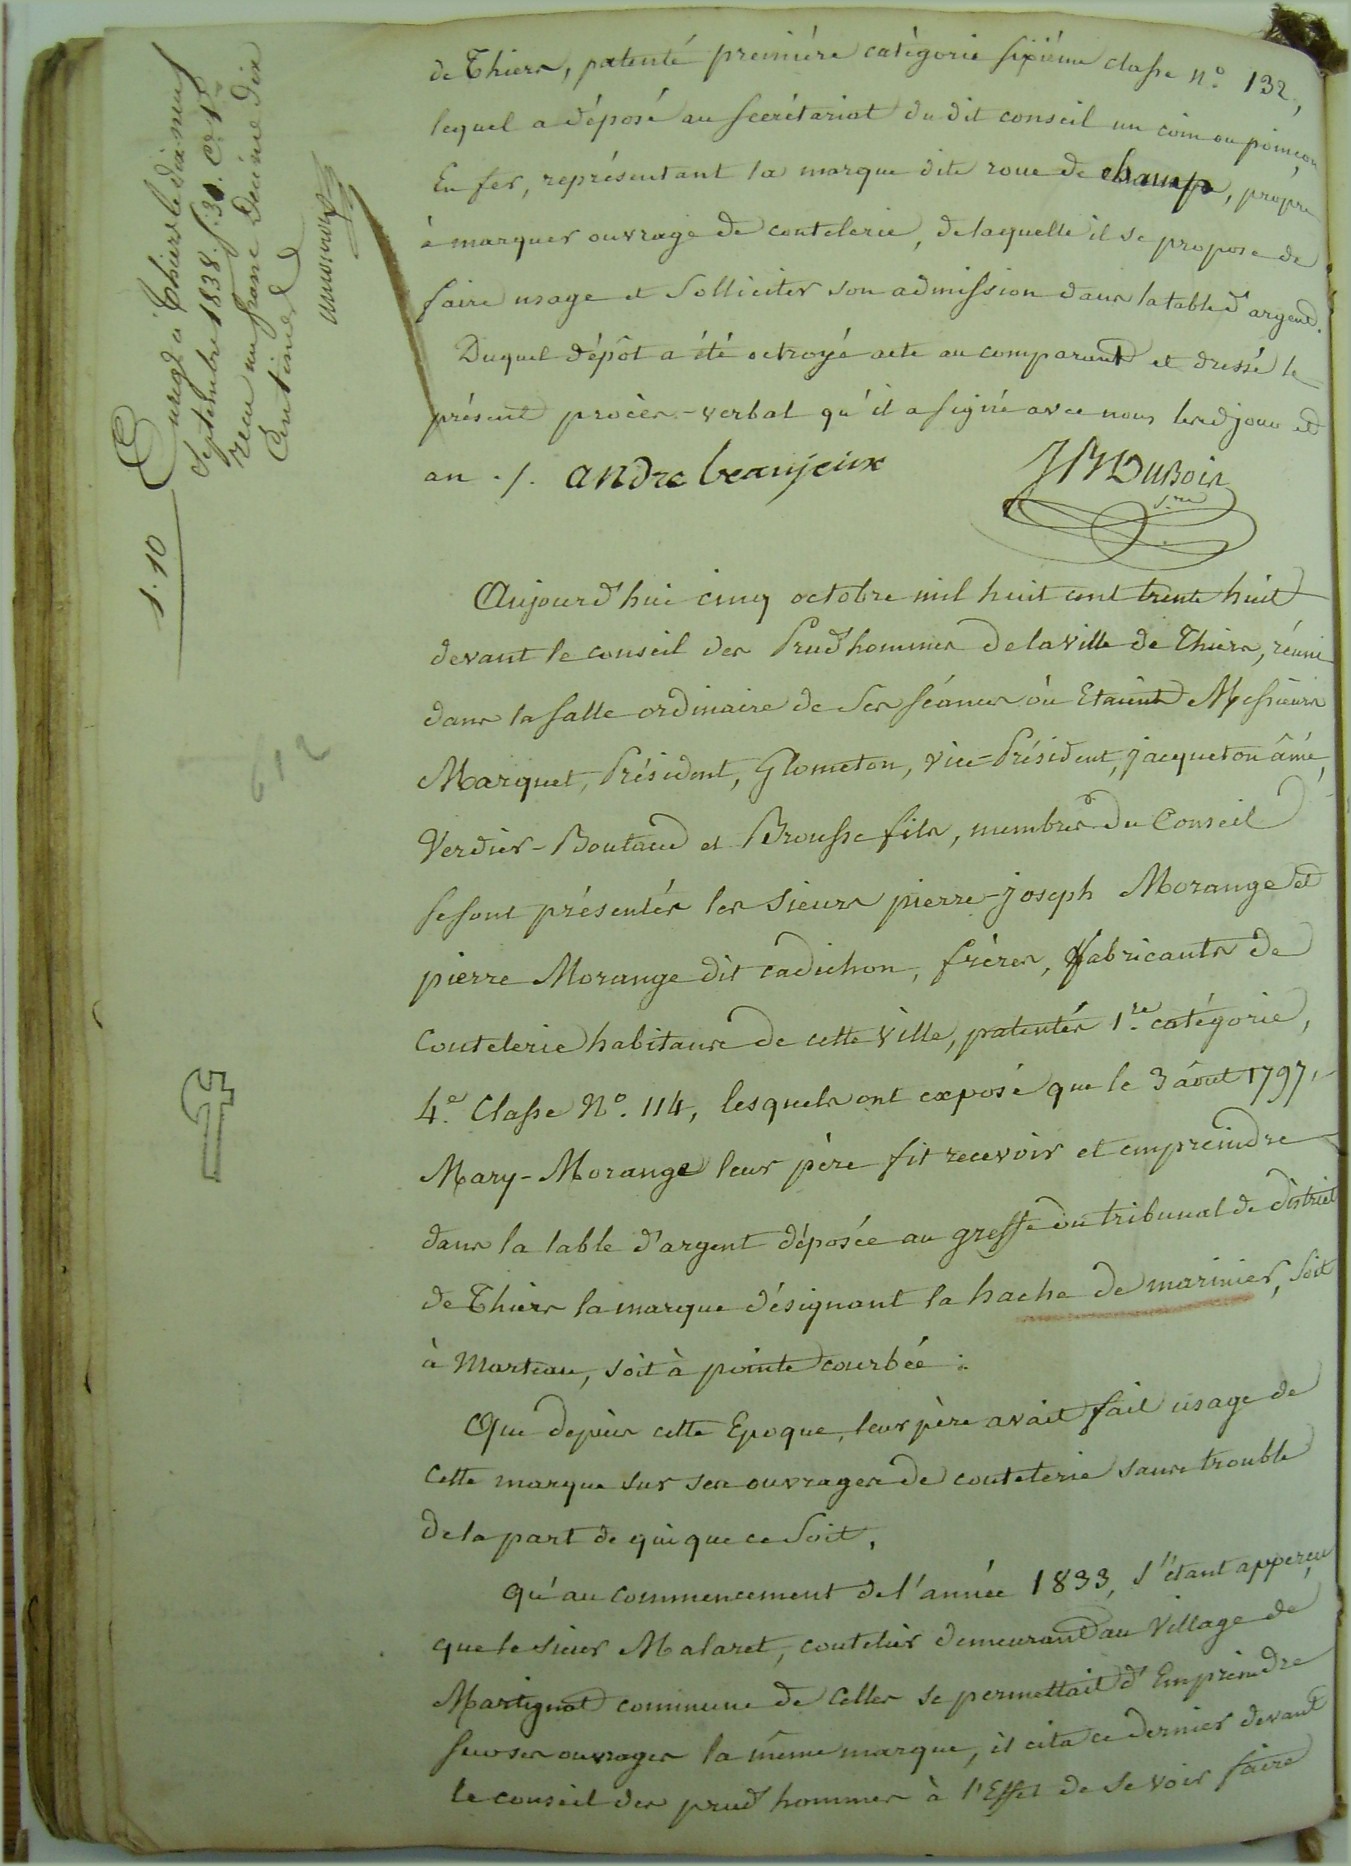 de Thiers, patenté première catégorie sixième classe n.° 132,
lequel a déposé au secrétariat du dit conseil un coin ou poinçon
En fer, représentant la marque dite roue de champs, propre
à marquer ouvrage de coutelerie, de laquelle il se propose de
faire usage et solliciter son admission dans la table d'argent.
Duquel dépôt a été octroyé acte au comparant et dressé le
présent procès-verbal qu'il a signé avec nous lesd jour et
an ./. andre beaujeux JB Dubois
S.re
Enregé à Thiers le dix neuf
Septembre 1838. f. 30.
reçu un franc décime dix
Centimes
1.10
612
Aujourd'hui cinq octobre mil huit cent trente huit
devant le conseil des Prud'hommes de la ville de Thiers, réuni
dans la salle ordinaire de ses séances où Etaient Messieurs
Marquet, Président, Glometon, vice-Président, jacqueton âiné,
Verdier-Boutaud et Brousse fils, membres du Conseil
se sont présentés les sieurs pierre-joseph Morange et
pierre Morange dit cadichon, frères, fabricants de
Coutelerie habitans de cette ville, patentés 1.re catégorie,
4.e Classe N.° 114, lesquels ont exposé que le 3 août 1797,
Mary-Morange leur père fit recevoir et empreindre
dans la table d'argent déposée au greffe du tribunal de district
de Thiers la marque désignant la hache de marinier, soit
à Marteau, soit à pointe courbée :
Que depuis cette Epoque, leur père avait fait usage de
Cette marque sur ses ouvrages de coutelerie sans trouble
de la part de qui que ce soit,
qu'au commencement de l'année 1833, s'étant apperçu
que le sieur Malaret, coutelier demeurant au Village de
Martignat commune de Celles se permettait d'Empreindre
sur ses ouvrages la même marque, il cita ce dernier devant
le conseil des prud'hommes à l'Effet de se voir faire